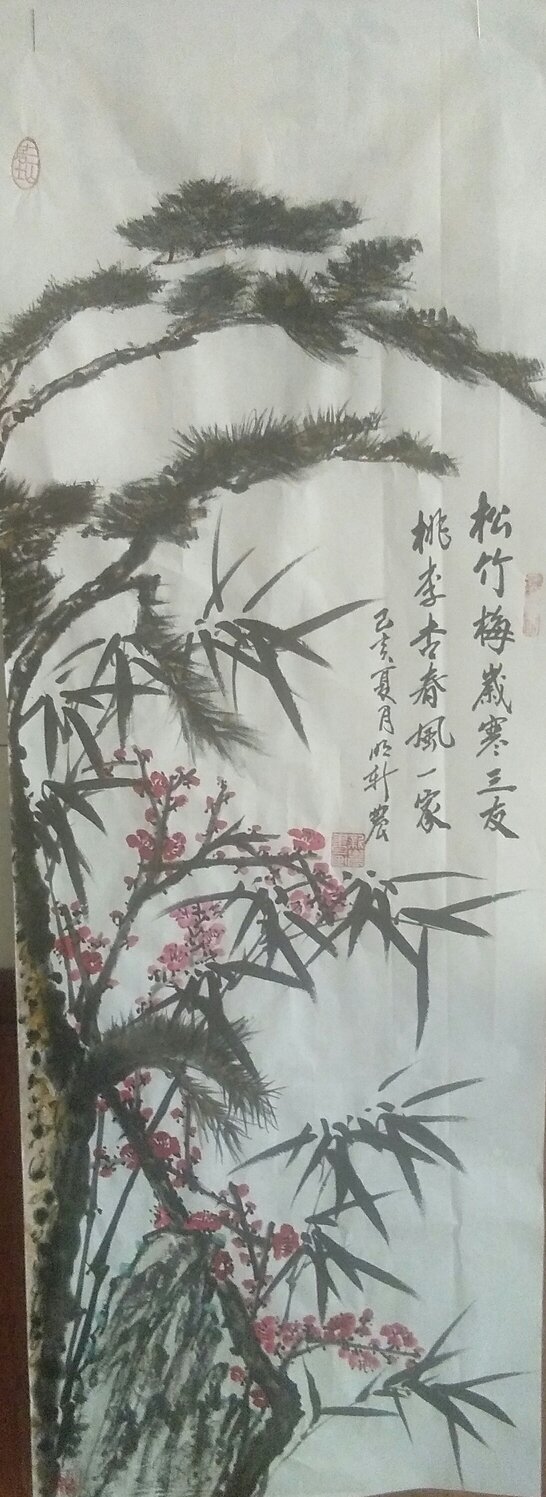 松竹梅歲寒三友
桃李杏春風一家
己亥夏月明軒農